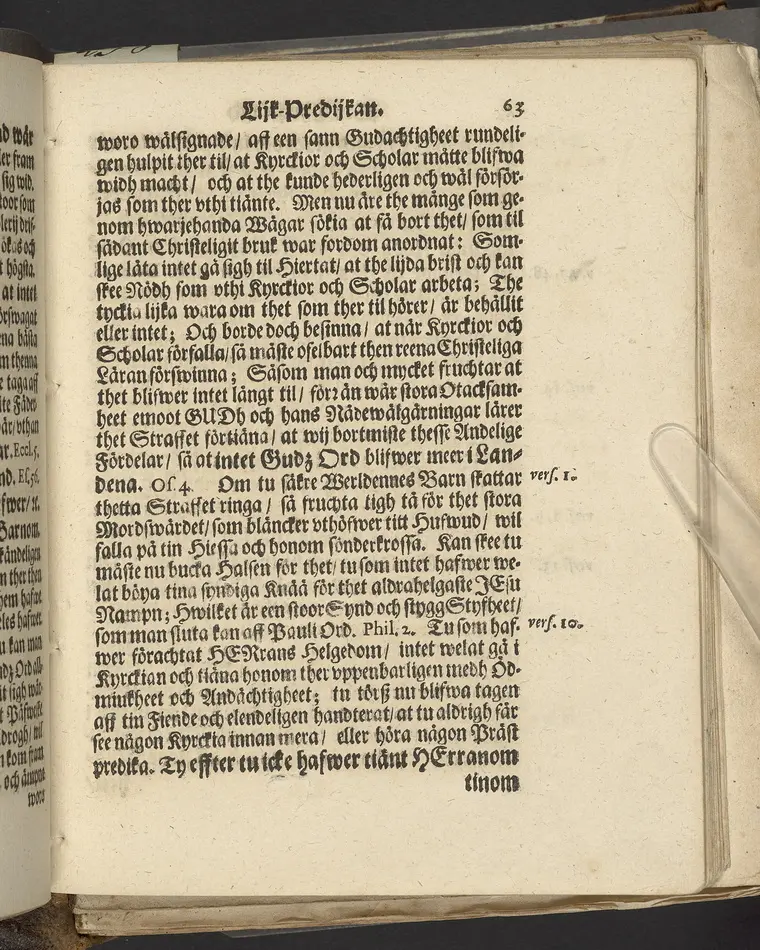 Lijk-Predijkan. 63
woro wälsignade/ aff een sann Gudachtigheet rundeli-
gen hulpit ther til/ at Kyrckior och Scholar mätte blifwa
widh macht/ och at the kunde hederligen och wäl försör-
jas som ther vthi tiänte. Men nu äre the månge som ge-
nom hwarjehanda Wägar sökia at få bort thet/ som til
sådant Christeligit bruk war fordom anordnat: Som-
lige låta intet gå sigh til Hiertat/ at the lijda brist och kan
skee Nödh som vthi Kyrckior och Scholar arbeta; The
tyckia lijka wara om thet som ther til hörer/ är behållit
eller intet; Och borde doch besinna/ at när Kyrckior och
Scholar förfalla/ så måste ofelbart then reena Christeliga
Läran förswinna; Såsom man och mycket fruchtar at
thet blifwer intet långt til/ förr än wår stora Otacksam-
heet emoot GUDh och hans Nådewälgärningar lärer
thet Straffet förtiäna/ at wij bortmiste thesse Andelige
Fördelar/ så at intet Gudz Ord blifwer meer i Lan-
dena. Of. 4. Om tu säkre Werldennes Barn skattar vers. 1.
thetta Straffet ringa/ så fruchta tigh tå för thet stora
Mordswärdet/ som bläncker vthöfwer titt Hufwud/ wil
falla på tin Hiessa och honom sönderkrossa. Kan skee tu
måste nu bucka Halsen för thet/ tu som intet hafwer we-
lat böya tina syndiga Knää för thet aldrahelgaste JEsu
Nampn; Hwilket är een stoor Synd och stygg Styfheet/
som man sluta kan aff Pauli Ord. Phil. 2. Tu som haf- vers. 10.
wer förachtat HERrans Helgedom/ intet welat gå i
Kyrckian och tiäna honom ther vppenbarligen medh Öd-
miukheet och Andächtigheet; tu törß nu blifwa tagen
aff tin Fiende och elendeligen handterat/ at tu aldrigh får
see någon Kyrckia innan mera/ eller höra någon Präst
predika. Ty effter tu icke hafwer tiänt HErranom
tinom